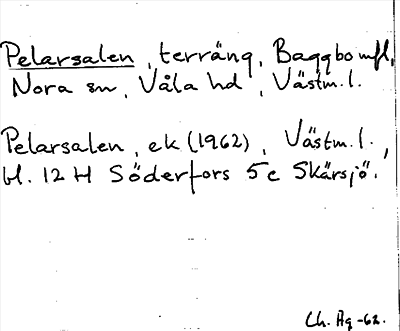 Pelarsalen, terräng, Baggbo mfl,
Nora sn, Våla hd, Västm. l.
Pelarsalen, ek (1962), Västm. l.,
bl. 12 H Söderfors 5 e Skärsjö.
Ch. Ag -62.